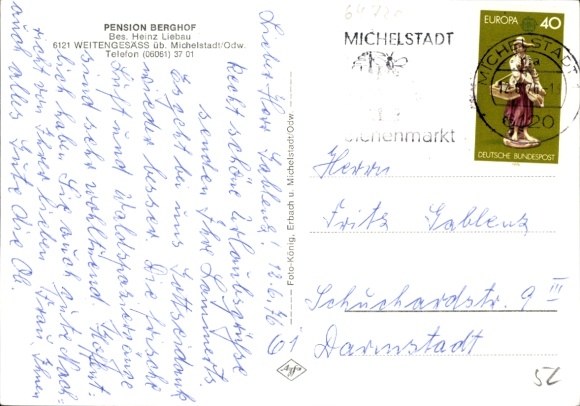 PENSION BERGHOF
Bes. Heinz Liebau
6121 WEITENGESÄSS üb. Michelstadt/Odw.
Telefon (06061) 37 01
Lieber Herr Gablenz! 12.6.76
Recht schöne Urlaubsgrüße
senden Ihre Lammerts
Es geht bei uns Gottseidank
wieder besser. Die frische
Luft und Waldspaziergänge
sind sehr wohltuend. Hoffent-
lich haben Sie auch gute Nach-
richt von Ihrer lieben Frau. Ihnen
auch alles Gute die Ob.
Foto-König, Erbach u. Michelstadt/Odw.
Agfa
64720
MICHELSTADT
Bienenmarkt
MICHELSTADT
6120
EUROPA 40
DEUTSCHE BUNDESPOST
1976
Herrn
Fritz Gablenz
Schuchardstr. 9 III
61 Darmstadt
52